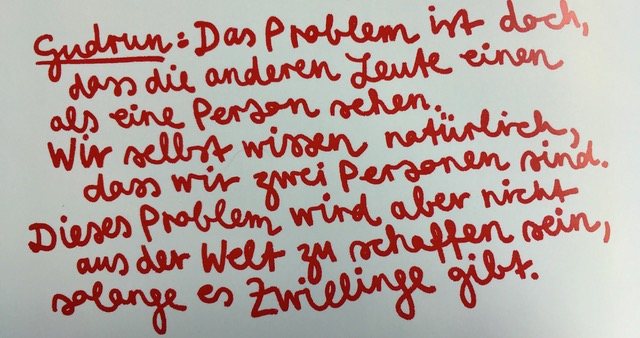 Gudrun: Das Problem ist doch,
dass die anderen Leute einen
als eine Person sehen.
Wir selbst wissen natürlich,
dass wir zwei Personen sind.
Dieses Problem wird aber nicht
aus der Welt zu schaffen sein,
solange es Zwillinge gibt.